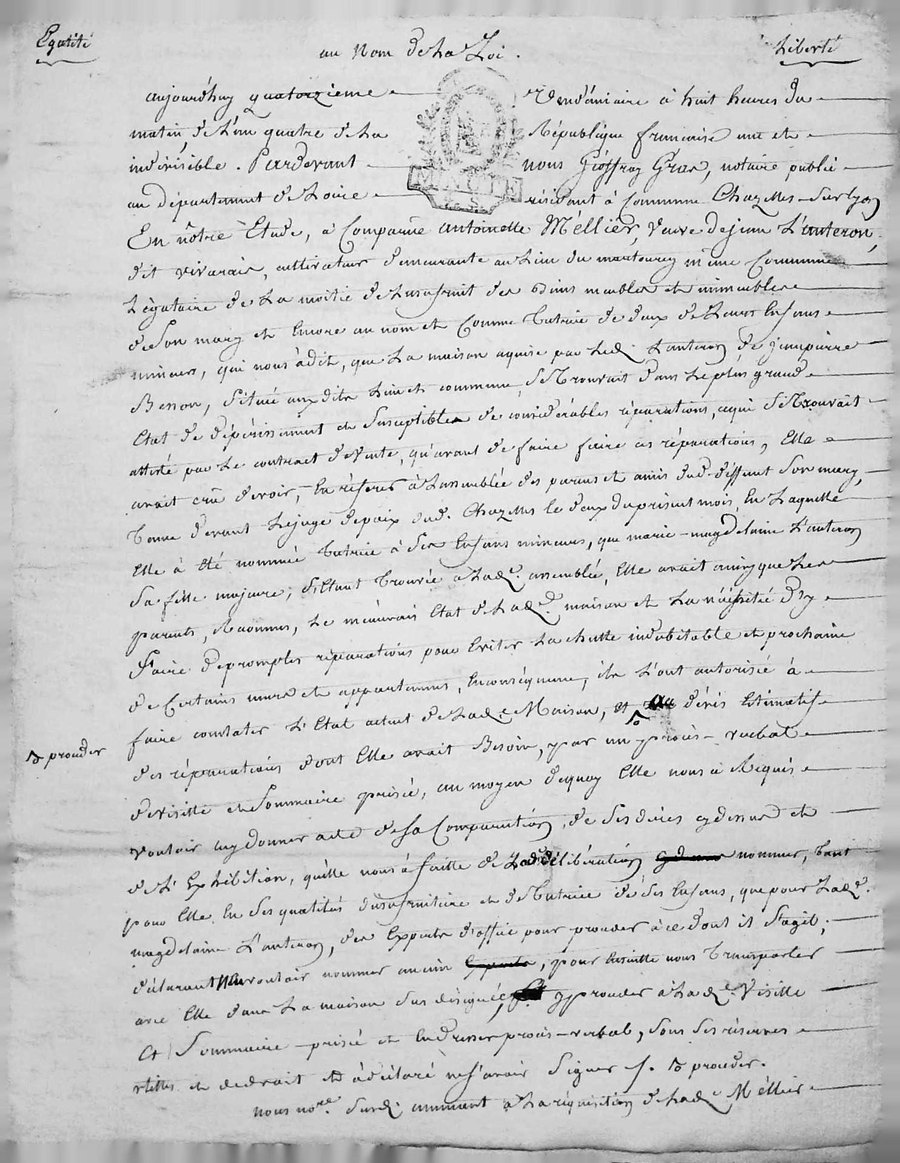 Egalité au Nom de La Loi. Liberté
aujourdhuy quatorzieme vendémiaire à huit heures du
matin, de L'an quatre de La République francaise une et
indivisible. Pardevant nous Geoffray Gras, notaire public
au département de Loire résidant à Commune Chazelles-Sur Lyon
En nôtre Etude, a Comparüe antoinette Méllier, veuve de jean L'anteron,
dit vivarais, cultivateur demeurante au Lieu du même Commune
Légataire de La moitié de Lusufruit des Biens meubles et immeubles
de Son mary et Encore au nom et Comme Tutrice de deux de Leurs Enfans
mineurs, qui nous à dit, que La maison aquise par Led. L'anteron de jeanpierre
Besson, Située auxdits Lieu et commune Se Trouvait dans Le plus grand
Etat de dépérissement et Susceptible de considérables réparations, ce qui Se Trouvait
attesté par Le contract de vente, qu'avant de faire faire ces réparations, Elle
avait crû devoir, En référer à L'assemblée des parens et amis dud. déffunt Son mary,
Tenue devant Le juge de paix dud. Chazelles le deux du présent mois, En Laquelle
Elle à Eté nommée Tutrice à Ses Enfans mineurs, que marie-magdelaine L'anteron
Sa fille majeure, S'Etant Trouvée à Lad.e assemblée, Elle avait ainsy que Les
parents, Reconnu, Le mauvais Etat de Lad.e maison et La nécéssité d'y
Faire de promptes réparations pour Eviter La chutte indubitable et prochaine
de Certains murs et appartemens, Enconséquence, ils L'ont autorisée à
faire constater L'Etat actuel de Lad.e Maison, et au dévis Estimatif
proceder
des réparations dont Elle avait Besoin, par un procès-verbal
de visitte et Sommaire prisée, au moyen de quoy Elle nous à Requis
vouloir luy donner acte de Sa Comparution, de Ses dires cydessus et
de L'Exhibition, qu'elle nous à faitte de Lad. délibération nommer, Tant
pour Elle En Ses qualités d'usufruitiere et de Tutrice de Ses Enfans, que pour Lad.e
magdelaine L'anteron, des Experts d'office pour proceder à ce dont il S'agit,
déclarant vouloir nommer aucun, pour Ensuitte nous Transporter
avec Elle dans La maison Sus désignée, y proceder à Lad.e visitte
Et Sommaire-prisée et En dresser procès-verbal, Sous Ses réserves
et de droit et à déclaré ne Savoir Signer. proceder.
nous no.re Susd. à La réquisition de Lad.e Méllier